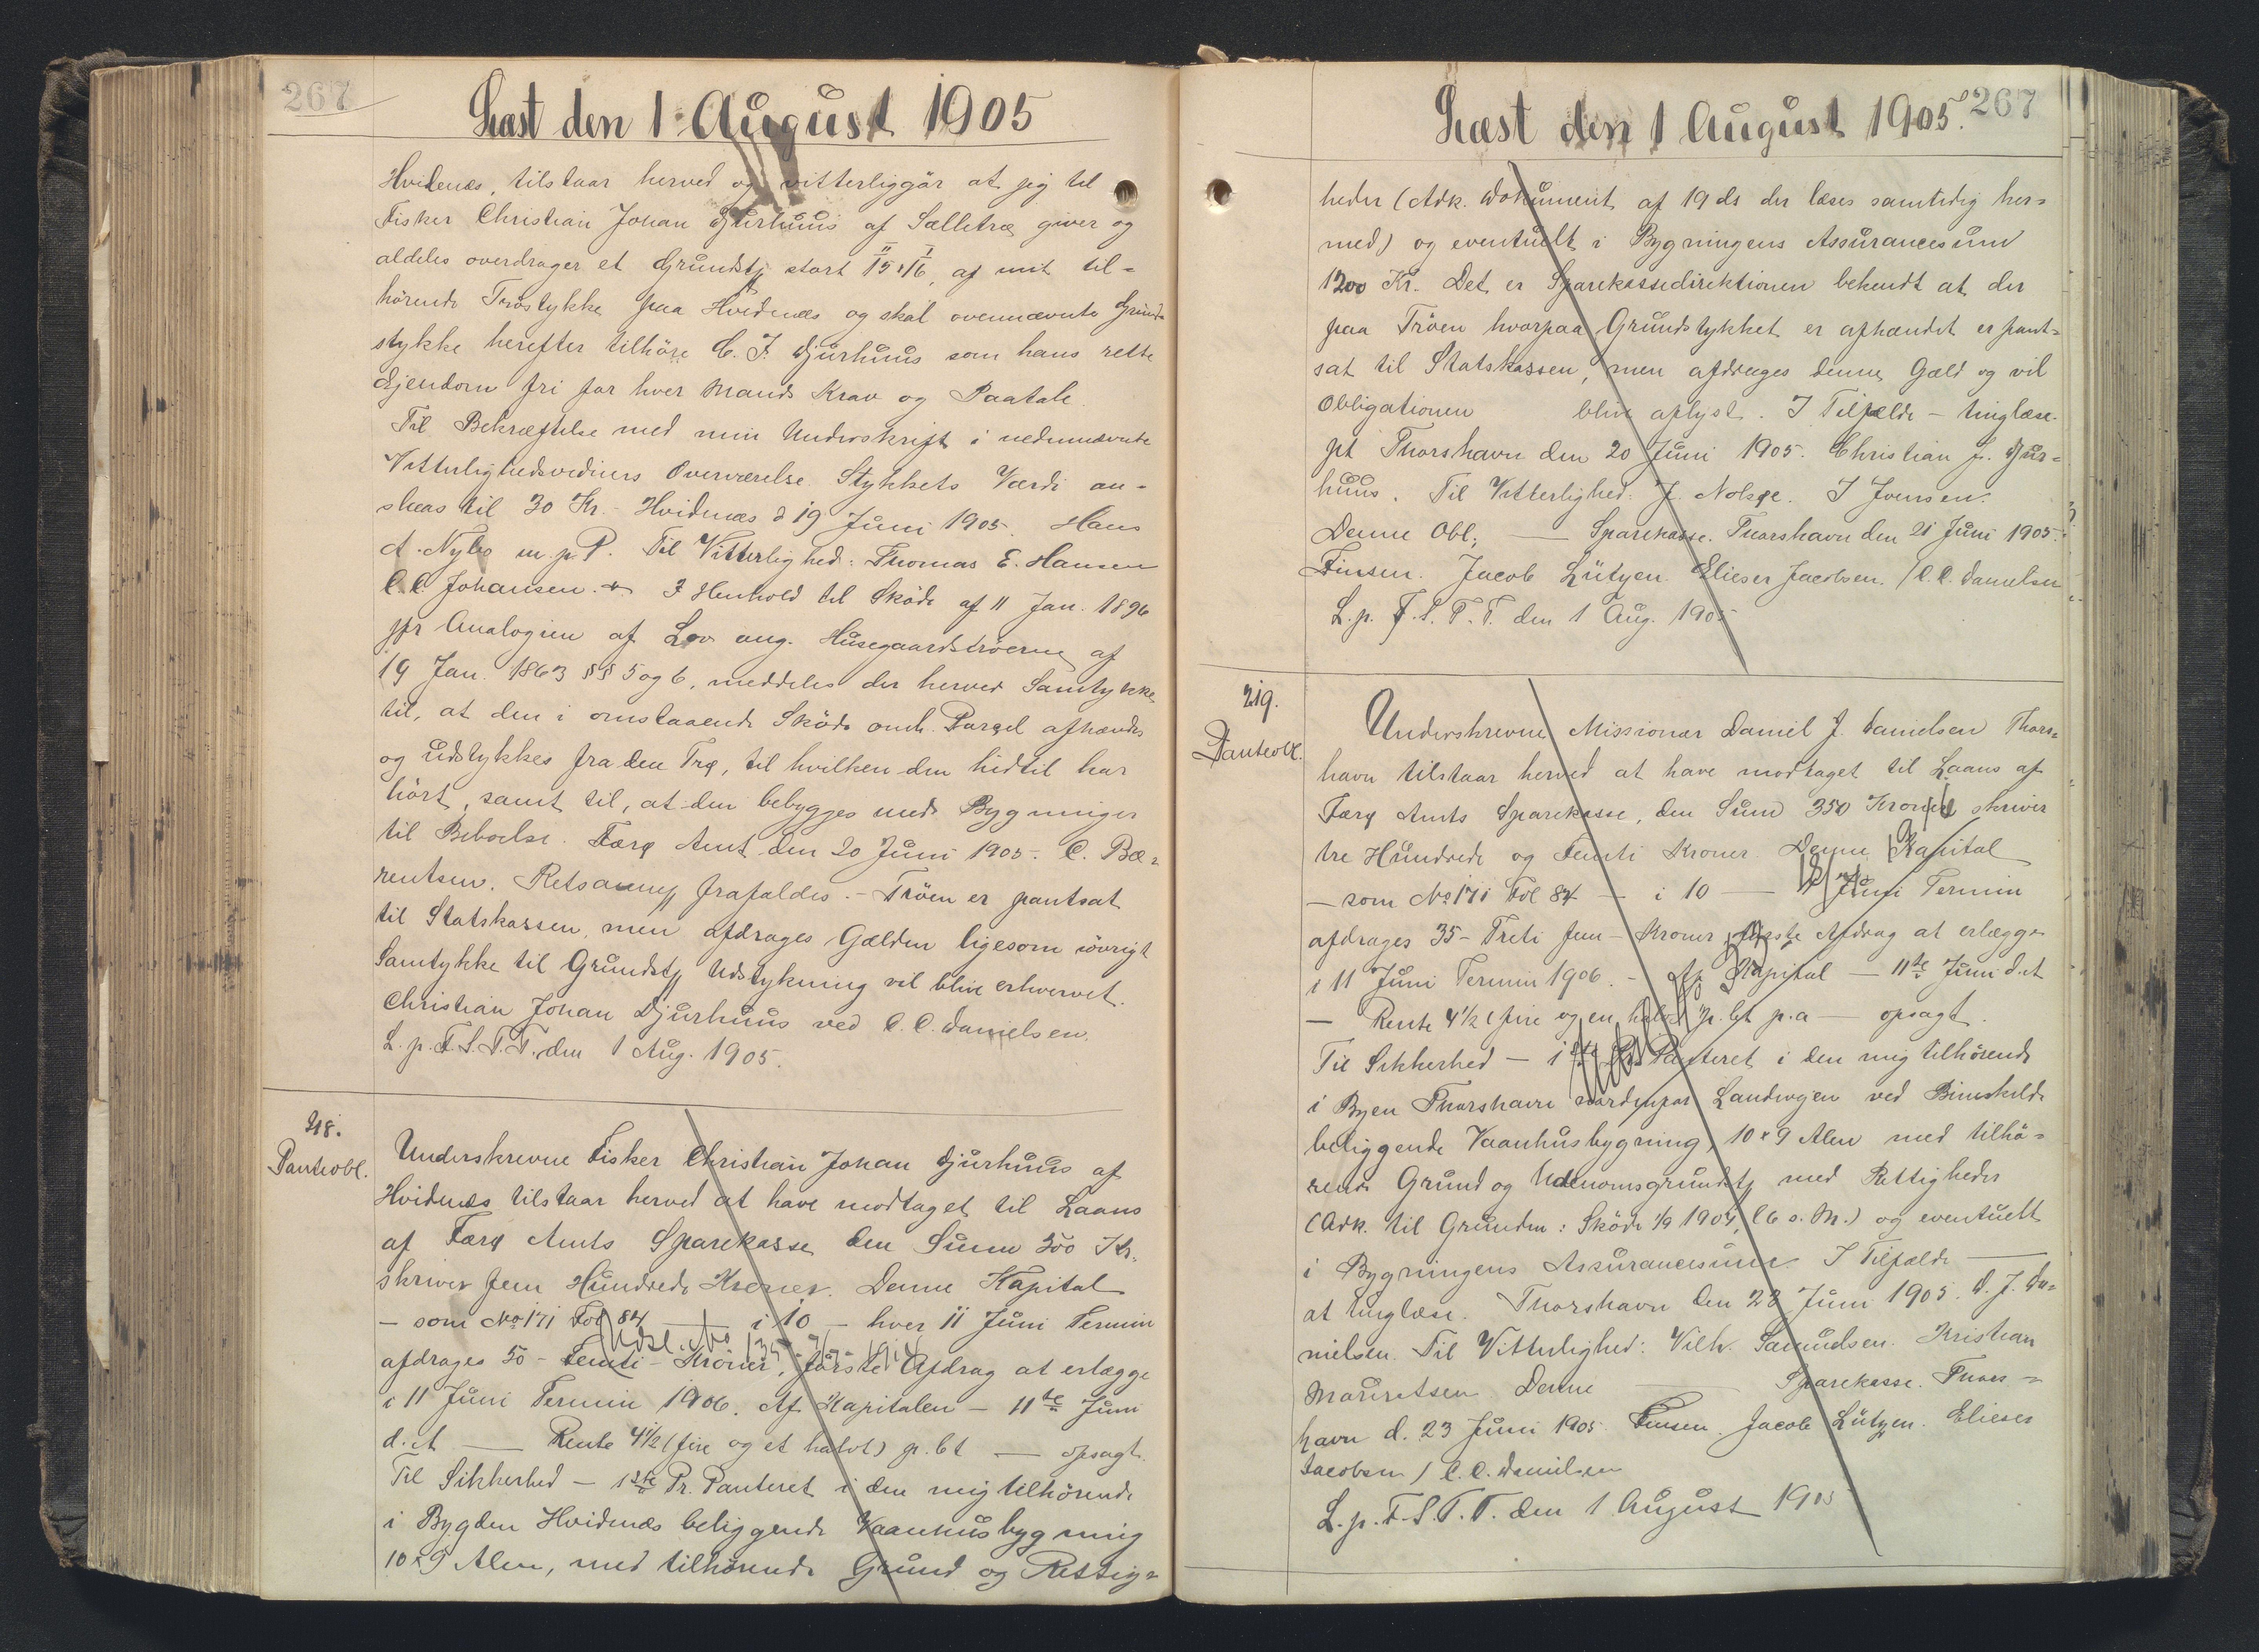 267
Læst den 1 August 1905
Hvidenæs, tilstaar herved og vitterliggör at jeg til
Fisker Christian Johan Djurhuus af Sælletræ giver og
aldeles overdrager et Grundst. stort 15 x 16, af mit til-
hörende Tröstykke paa Hvidenæs og skal ovennævnte Grund-
stykke herefter tilhöre C. J. Djurhuus som hans rette
Ejendom fri for hver Mands Krav og Paatale.
Til Bekræftelse med min Underskrift i nedennævnte
Vitterlighedsvidners Overværelse. Stykkets Værdi an-
sleas til 30 Kr. Hvidenæs d 19 Juni 1905. Hans
A. Nybo m. p. P. Til Vitterlighed: Thomas E. Hansen
C. C. Johansen. I Henhold til Sköde af 11 Jan. 1896
jfr Analogien af Lov ang. Husegaardströerne af
19 Jan. 1863 §§ 5 og 6, meddeles der herved Samtykke
til, at den i omstaaende Sköde omh. Parcel afhændes
og udstykkes fra den Trø, til hvilken den hidtil har
hört, samt til, at den bebygges med Bygninger
til Beboelse. Færø Amt den 20 Juni 1905. C. Bæ-
rentsen. Retsanm frafaldes. - Tröen er pantsat
til Statskassen, men afdrages Gælden ligesom iövrigt
Samtykke til Grundst Udstykning vil blive erhvervet.
Christian Johan Djurhuus ved C. C. Danielsen.
L. p. F. S. T. T. den 1 Aug. 1905.
218.
Panteobl.
Underskrevne Fisker Christian Johan Djurhuus af
Hvidenæs tilstaar herved at have modtaget til Laans
af Færø Amts Sparekasse den Sum 500 Kr.
skriver fem Hundrede Kroner. Denne Kapital
- som No 171 Fol 84 — i 10 - hver 11 Juni Termin
Udsl.
afdrages 50 - Femti - Kroner, förste Afdrag at erlægge
i 11 Juni Termin 1906. Af Kapitalen - 11te Juni
d. A — Rente 4 1/2 (fire og et halvt) p. Ct — opsagt.
Til Sikkerhed - 1ste Pr. Panteret i den mig tilhörende
i Bygden Hvidenæs beliggende Vaanhusbygning
10 x 9 Alen, med tilhörende Grund og Rettig-
Læst den 1 August 1905. 267
heder (Adk. Dokument af 19 ds der læses samtidig her-
med) og eventuelt i Bygningens Assurancesum
1200 Kr. Det er Sparekassedirektionen bekendt at der
paa Tröen hvorpaa Grundstykket er afhændet er pant-
sat til Statskassen, men afdrages denne Gæld og vil
Obligationen blive aflyst. I Tilfælde - tinglæse.
pt Thorshavn den 20 Juni 1905. Christian J. Djur-
huus. Til Vitterlighed: J. Nolsøe. I Joensen.
Denne Obl; — Sparekasse. Thorshavn den 21 Juni 1905.
Finsen. Jacob Lützen. Elieser Jacobsen. / C. C. Danielsen
L. p. F. S. T. T. den 1 Aug. 1905
219.
Panteobl.
Underskrevne Missionær Daniel J. Danielsen Thors-
havn tilstaar herved at have modtaget til Laans af
Færø Amts Sparekasse, den Sum 350 Kroner skriver
tre Hundrede og Femti Kroner. Denne Kapital
- som No 171 Fol 84 - i 10 — Juni Termin
afdrages 35 - Treti fem - Kroner, förste Afdrag at erlægge
i 11 Juni Termin 1906. - Af Kapital — 11te Juni d. A
— Rente 4 1/2 (fire og en halv) p. Ct p. a — opsagt.
Til Sikkerhed - 1ste Pr. Panteret i den mig tilhörende
i Byen Thorshavn nordenfor Landevejen ved
beliggende Vaanhusbygning, 10 x 9 Alen med tilhö-
rende Grund og Udenomsgrundst med Rettigheder
(Adk. til Grunden: Sköde 1/9 1904, (6 s. M.) og eventuelt
i Bygningens Assurancesum. I Tilfælde —
at tinglæse. Thorshavn den 23 Juni 1905. D. J. Da-
nielsen. Til Vitterlighed: Vilh. Samuelsen. Kristian
Mouritsen. Denne — Sparekasse. Thors-
havn d. 23 Juni 1905. Finsen. Jacob Lützen. Elieser
Jacobsen / C. C. Danielsen
L. p. F. S. T. T. den 1 August 1905